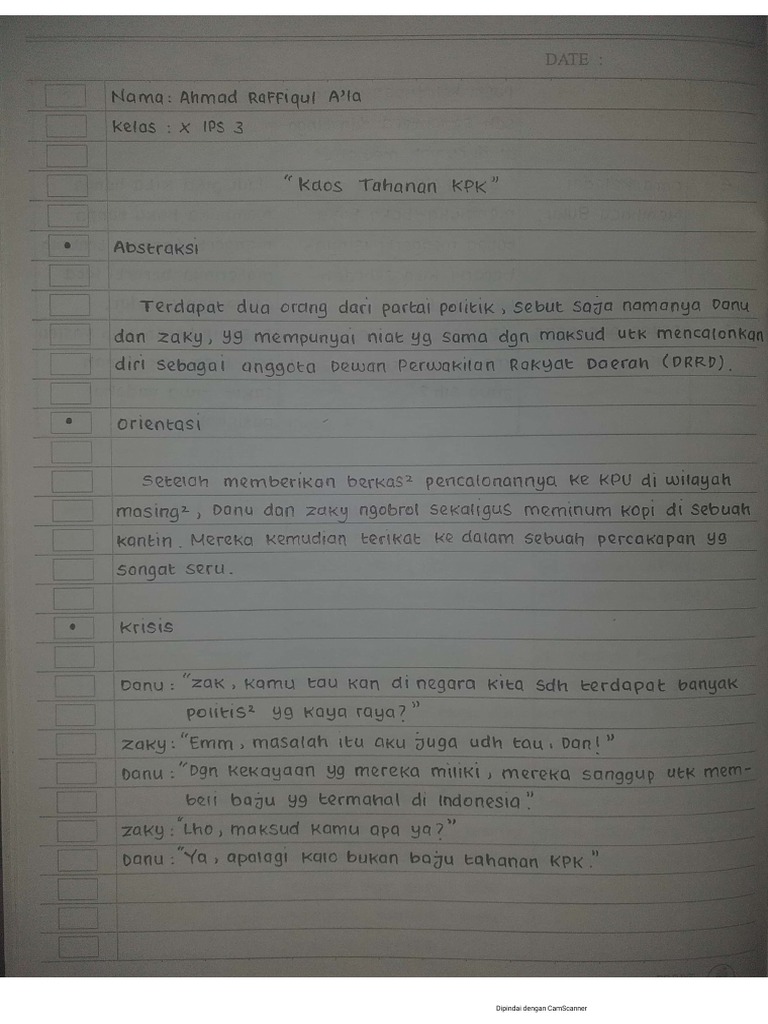 DATE :
Nama: Ahmad Raffiqul A'la
Kelas : X IPS 3
"Kaos Tahanan KPK"
• Abstraksi
Terdapat dua orang dari partai politik, sebut saja namanya Danu
dan Zaky, yg mempunyai niat yg sama dgn maksud utk mencalonkan
diri sebagai anggota Dewan Perwakilan Rakyat Daerah (DRRD).
• Orientasi
Setelah memberikan berkas² pencalonannya ke KPU di wilayah
masing², Danu dan Zaky ngobrol sekaligus meminum kopi di sebuah
kantin. Mereka kemudian terikat ke dalam sebuah percakapan yg
sangat seru.
• Krisis
Danu : "Zak, kamu tau kan di negara kita sdh terdapat banyak
politis² yg kaya raya?"
Zaky : "Emm, masalah itu aku juga udh tau, Dan!"
Danu : "Dgn kekayaan yg mereka miliki, mereka sanggup utk mem-
beli baju yg termahal di Indonesia."
Zaky : "Lho, maksud kamu apa ya?"
Danu : "Ya, apalagi kalo bukan baju tahanan KPK."
Dipindai dengan CamScanner